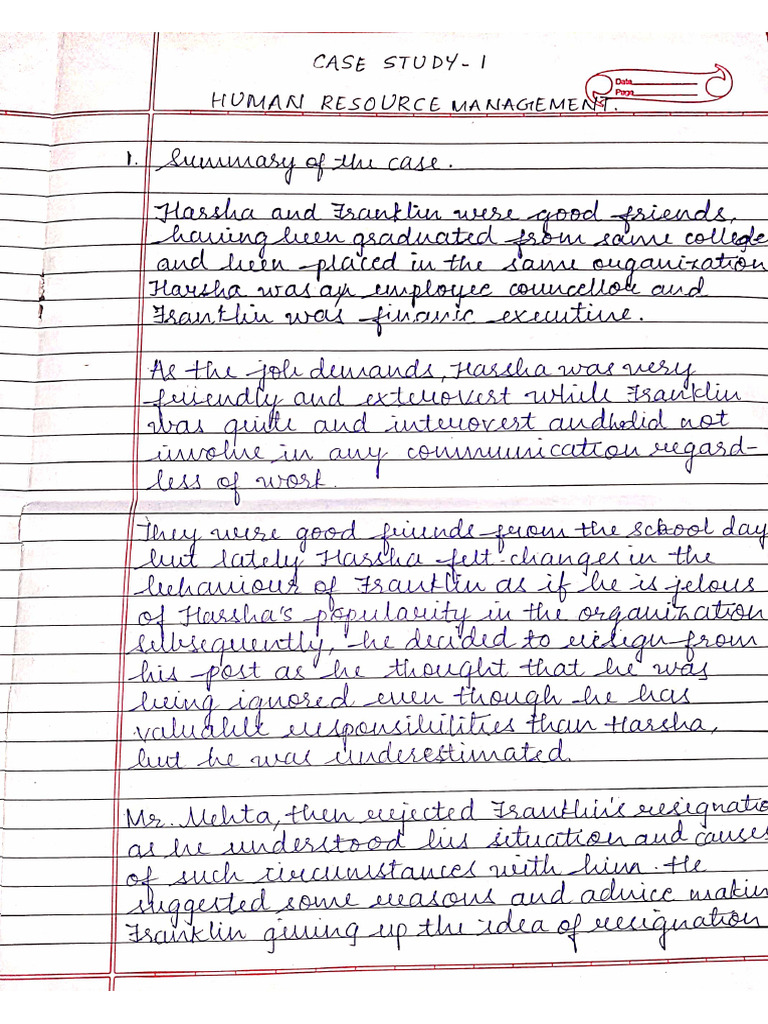 CASE STUDY-1
Date
Page
HUMAN RESOURCE MANAGEMENT.
1. Summary of the case.
Harsha and Franklin were good friends,
having been graduated from same college
and been placed in the same organization
Harsha was an employee councellor and
Franklin was finanic executive.
As the job demands, Harsha was very
friendly and exterovert while Franklin
was quite and interovert and he did not
involve in any communication regard-
less of work.
They were good friends from the school day
but lately Harsha felt changes in the
behaviour of Franklin as if he is jelous
of Harsha's popularity in the organization
subsequently, he decided to resign from
his post as he thought that he was
being ignored even though he has
valuable responsibilities than Harsha,
but he was underestimated.
Mr. Mehta, then rejected Franklin's resignatio
as he understood his situation and causes
of such circumstances with him. He
suggested some reasons and advice makin
Franklin giving up the idea of resignation